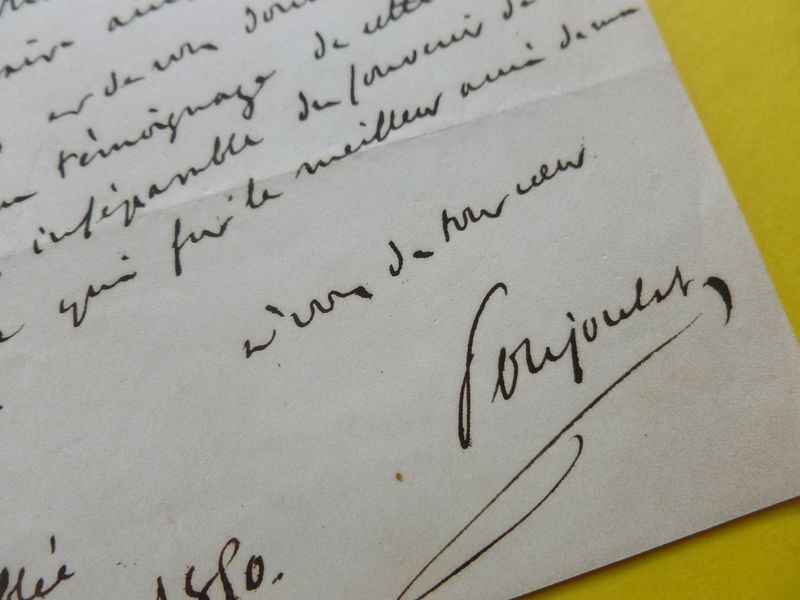 et de vos
témoignage de cette
inséparable du souvenir de
qui fut le meilleur ami de ma
à vous de tout cœur
Poujoulat
1850.